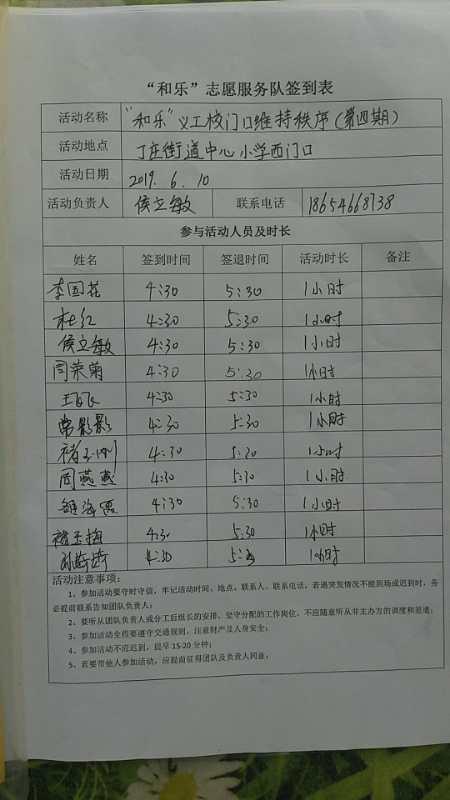 “和乐”志愿服务队签到表
活动名称 “和乐”义工校门口维持秩序（第四期）
活动地点 丁庄街道中心小学西门口
活动日期 2019. 6. 10
活动负责人 侯立敏 联系电话 18654668738
参与活动人员及时长
姓名 签到时间 签退时间 活动时长 备注
李国花 4:30 5:30 1小时
杜红 4:30 5:30 1小时
侯立敏 4:30 5:30 1小时
闫荣菊 4:30 5:30 1小时
4:30 5:30 1小时
常影影 4:30 5:30 1小时
4:30 5:30 1小时
周燕燕 4:30 5:30 1小时
4:30 5:30 1小时
褚玉梅 4:30 5:30 1小时
4:30 1小时
活动注意事项：
1、参加活动要守时守信，牢记活动时间、地点、联系人、联系电话，若遇突发情况不能到场或迟到时，务
必提前联系告知团队负责人；
2、要听从团队负责人或分工后组长的安排，坚守分配的工作岗位，不应随意听从非主办方的调度和差遣；
3、参加活动全程要遵守交通规则，注意财产及人身安全；
4、参加活动不应迟到，提早 15-20 分钟；
5、若要带他人参加活动，应提前征得团队及负责人同意。